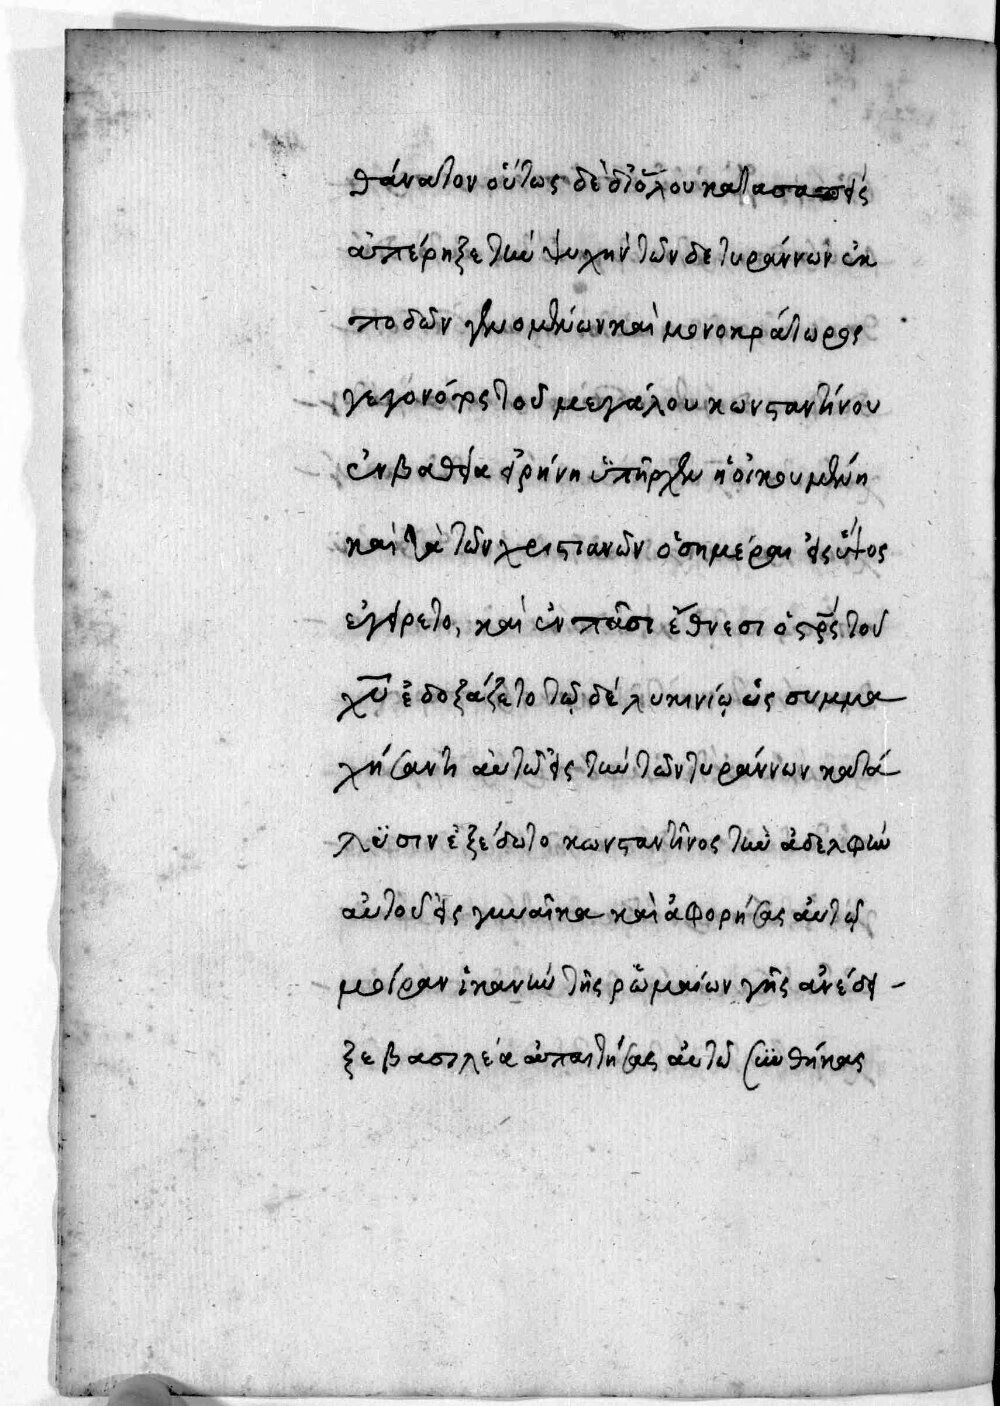 θάνατον οὕτως δὲ διόλου κατασαπεὶς
ἀπέρηξε τὴν ψυχὴν τῶν δε τυράννων ἐκ
ποδῶν γενομένων καὶ μονοκράτωρος
γεγονότος τοῦ μεγάλου κωνσταντίνου
ἐν βαθεία εἰρήνη ὑπῆρχεν ἡ οἰκουμένη
καὶ τὰ τῶν χριστιανῶν ὁσημέραι εἰς ὕψος
ἐγείρετο, καὶ ἐν πᾶσι ἔθνεσι ὁ στρς τοῦ
χῦ ἐδοξάζετο τῷ δέ λυκινίῳ ὡς συμμα
χήσαντι αὐτῶ εἰς τὴν τῶν τυράννων κατά
λϋσιν ἐξέδωτο κωνσταντῖνος τὴν ἀδελφὴν
αὐτοῦ εἰς γυναῖκα καὶ ἀφορήσας αὐτῷ
μοίραν ἱκανὴν τῆς ρωμαίων γῆς ἀνέδει-
ξε βασιλέα ἀπαιτήσας αὐτῶ συνθήκας